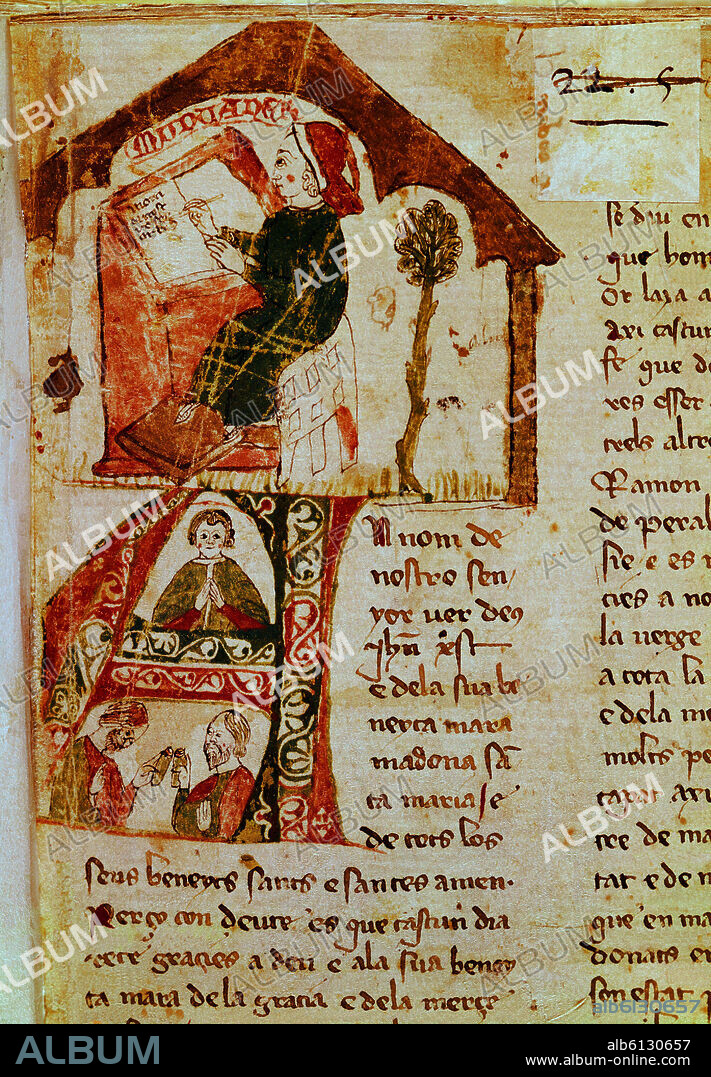 MUNTANER
22 . 5
A nom de
nostro sen
yor ver deus
Jhu xst
e dela sua be
neyta mara
madona sã
ta maria e
de tots los
seus beneyts sants e santes amen.
Perço con deute es que cascun dia
rete gracies a deu e ala sua beney
ta mara de la gracia e dela merçe
se diu en
que hom
Or laza a
axi cascun
fe que de
res esser
trels altre
Ramon
de peral
sie e es
cies a no
la verge
a tota la
e dela me
molts pe
tapat axi
tre de ma
tat e de n
que en ma
donats en
son estat p
ALBUM
alb6130657
ALBUM
alb6130657
www.album-online.com